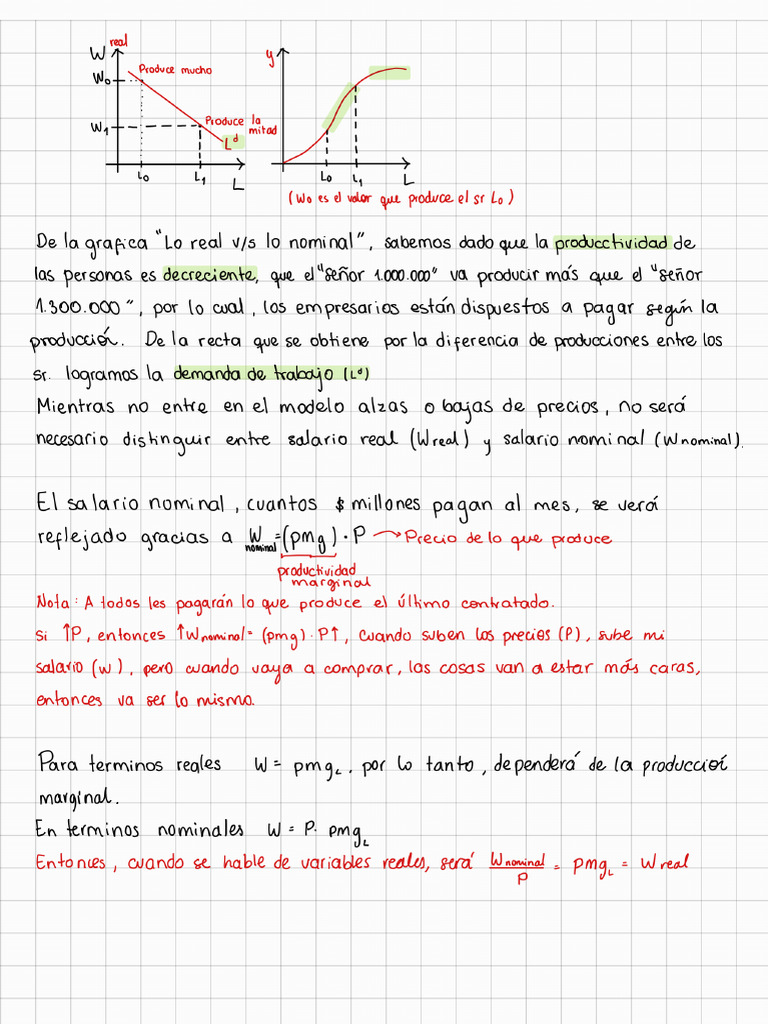 W real
W₀
Produce mucho
W₁
Produce la
mitad
Lᵈ
L₀
L₁
L
y
L₀
L₁
L
(Wo es el valor que produce el sr Lo)
De la grafica "Lo real v/s lo nominal", sabemos dado que la producctividad de
las personas es decreciente, que el "señor 1.000.000" va producir más que el "señor
1.300.000", por lo cual, los empresarios están dispuestos a pagar según la
producción. De la recta que se obtiene por la diferencia de producciones entre los
sr. logramos la demanda de trabajo (Lᵈ)
Mientras no entre en el modelo alzas o bajas de precios, no será
necesario distinguir entre salario real (Wreal) y salario nominal (Wnominal).
El salario nominal, cuantos $ millones pagan al mes, se verá
reflejado gracias a W nominal = (pmg) · P → Precio de lo que produce
productividad
marginal
Nota: A todos les pagarán lo que produce el último contratado.
Si ↑P, entonces ↑Wnominal = (pmg) · P↑, cuando suben los precios (P), sube mi
salario (w), pero cuando vaya a comprar, las cosas van a estar más caras,
entonces va ser lo mismo.
Para terminos reales W = pmg_L, por lo tanto, dependerá de la producción
marginal.
En terminos nominales W = P. pmg_L
Entonces, cuando se hable de variables reales, será Wnominal/P = pmg_L = Wreal